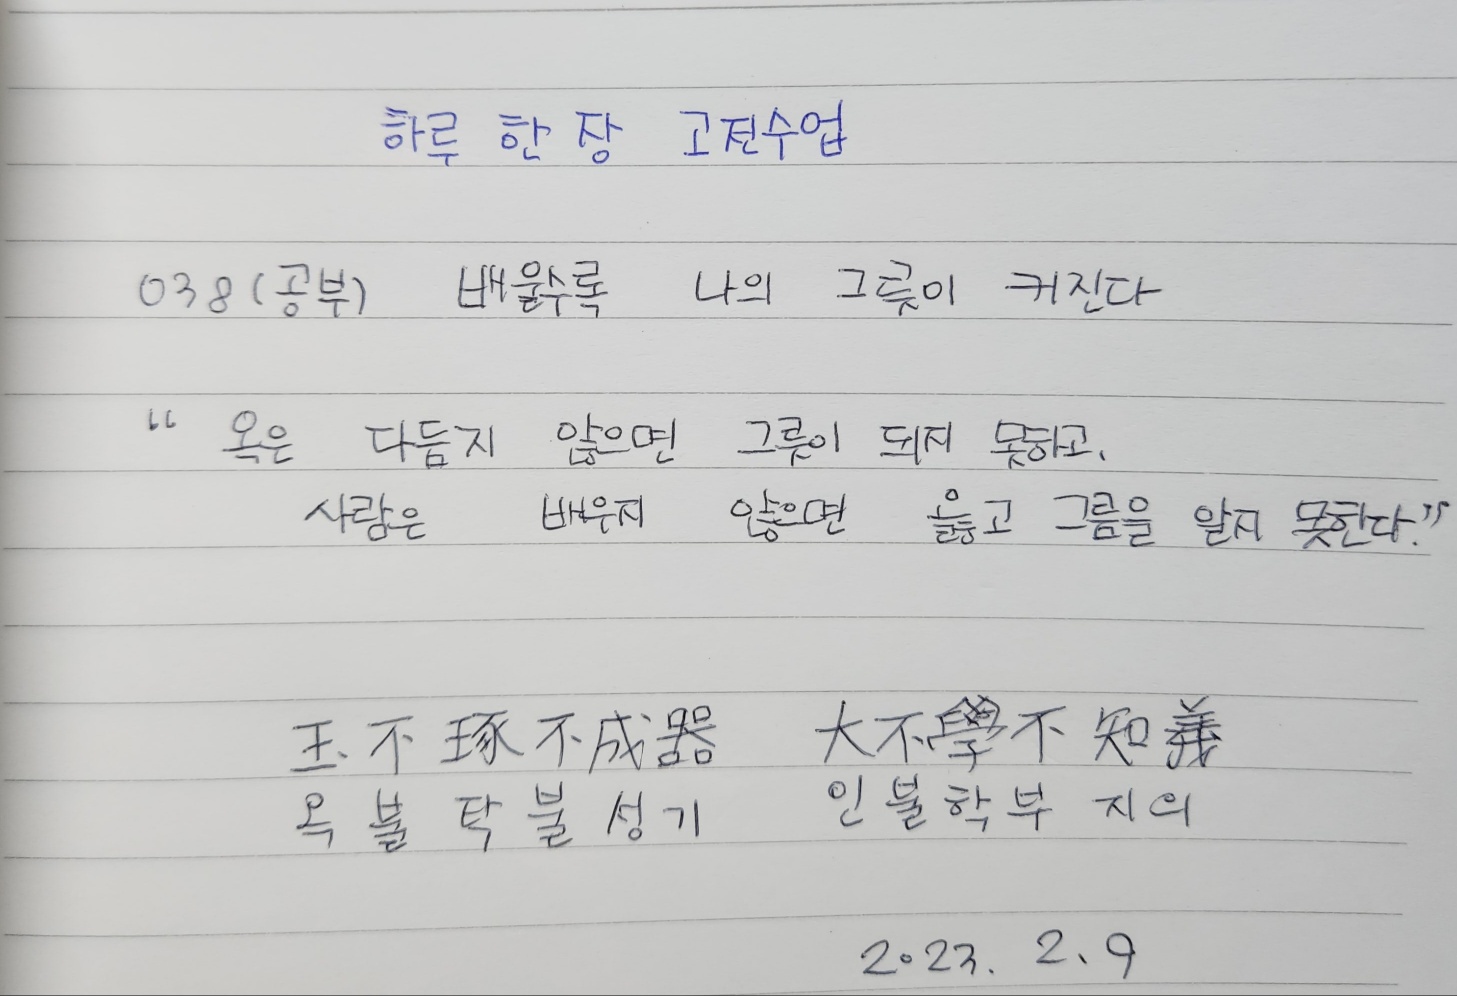 하루 한 장 고전수업
038(공부) 배울수록 나의 그릇이 커진다
“ 옥은 다듬지 않으면 그릇이 되지 못하고,
사람은 배우지 않으면 옳고 그름을 알지 못한다.”
玉不琢不成器 大不學不知義
옥불탁불성기 인불학부지의
2023. 2. 9